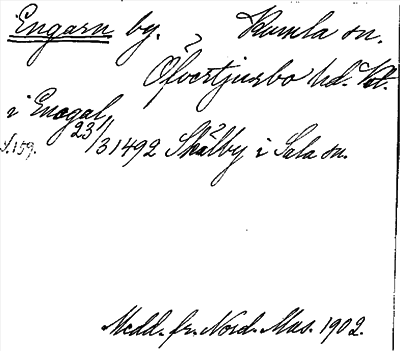 Engarn by. Kumla sn.
Öfvertjurbo hd. Vst.
i Enegal
23/3 1492 Skålby i Sala sn.
s. 159.
Medd. fr. Nord. Mus. 1902.